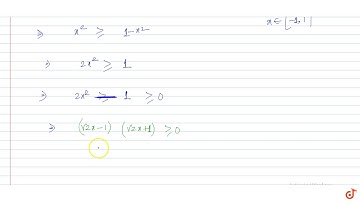 x ∈ [-1, 1]
⇒ x² ≥ 1-x²
⇒ 2x² ≥ 1
⇒ 2x² - 1 ≥ 0
⇒ (√2x-1) (√2x+1) ≥ 0